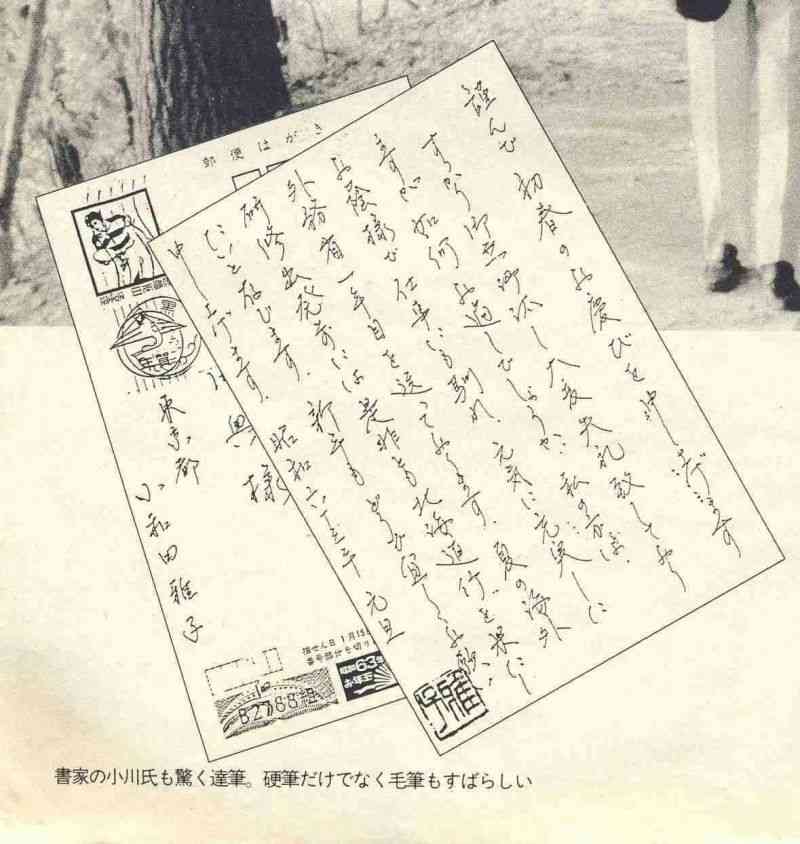 謹んで初春のお慶びを申し上げます
すっかり御無沙汰し大変失礼致してをり
ますが如何お過しでしょうか。私の方は、
お陰様で仕事にも馴れ、元気に充実した
外務省一年目を送ってをります。夏の海外
研修出発前には是非とも北海道行を果たし
たいと存じます。新年もどうぞ宜しくお願い
申し上げます。
昭和六十三年 元旦
雅子
郵便はがき
年賀
興様
東京都
小和田雅子
抽せん日1月15
番号部分を切り
B2788組
書家の小川氏も驚く達筆。硬筆だけでなく毛筆もすばらしい